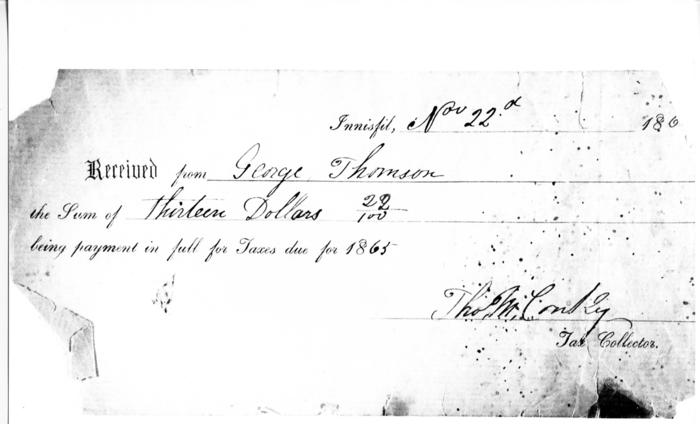 Innisfil, Nov 22.d 186
Received from George Thomson
the Sum of Thirteen Dollars 22/100
being payment in full for Taxes due for 1865
Thos McConkey
Tax Collector.